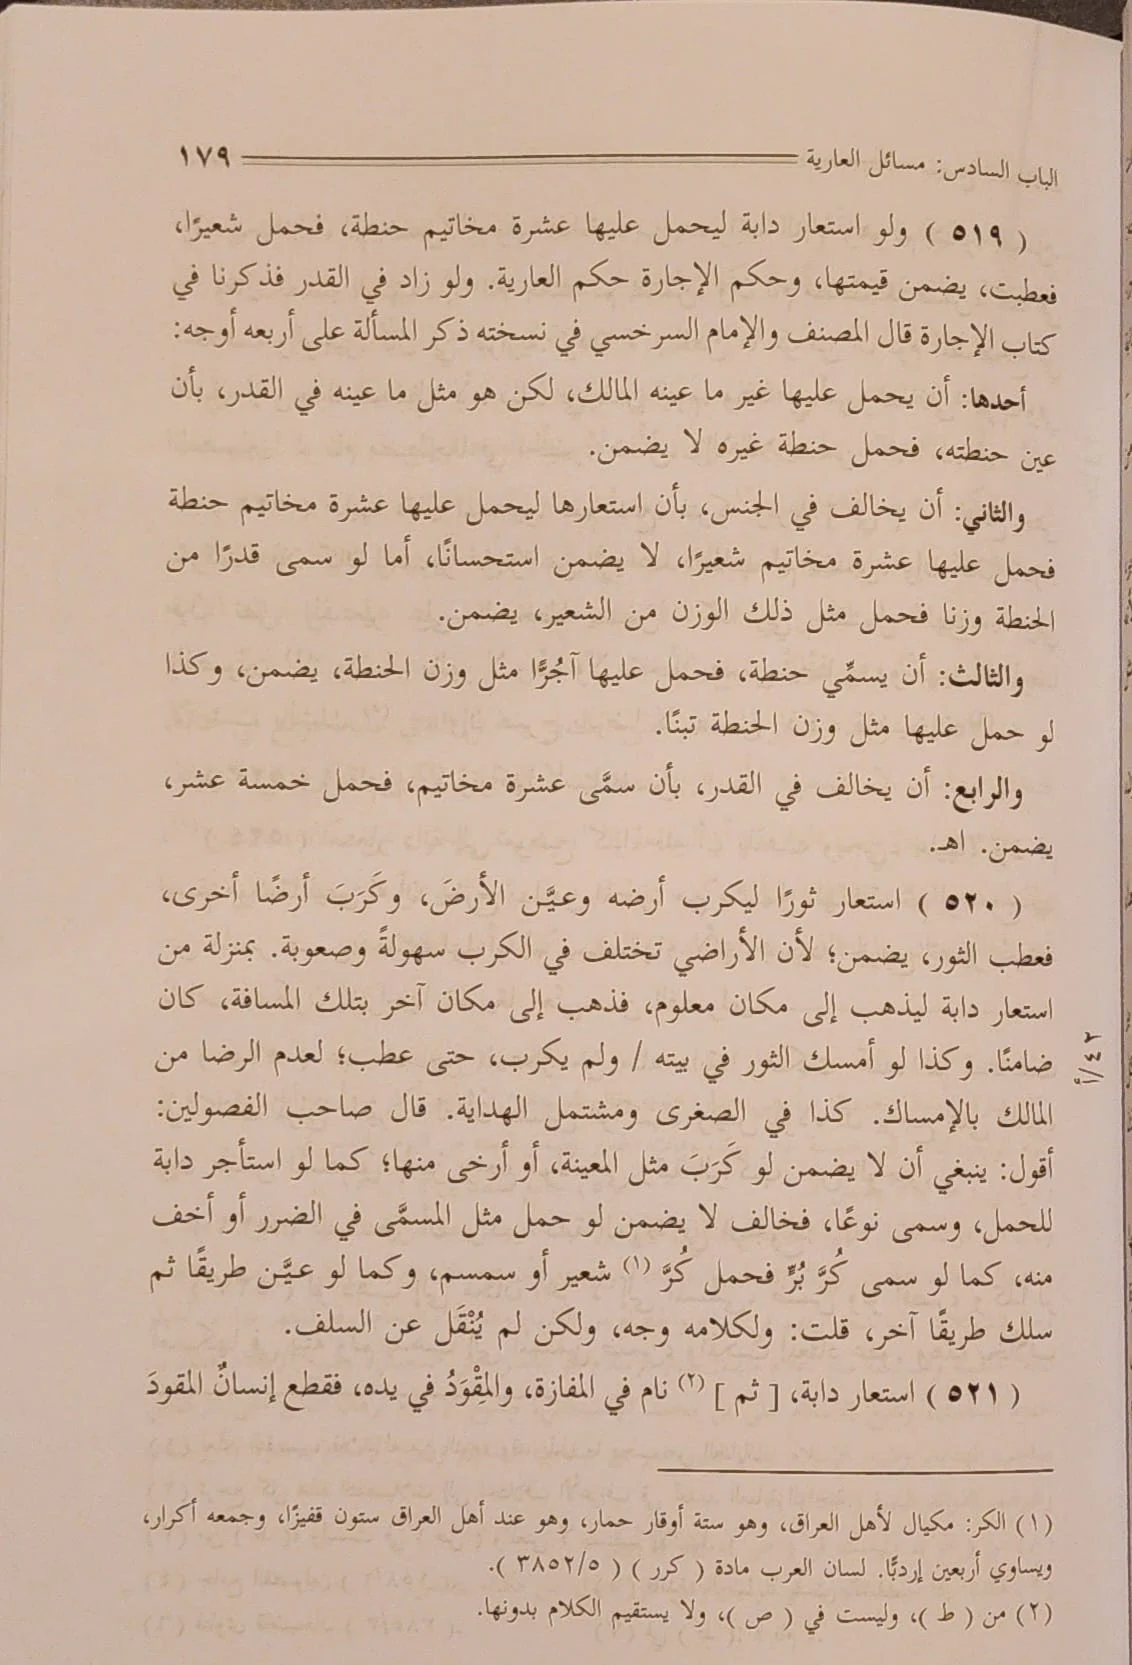 الباب السادس: مسائل العارية ١٧٩
( ٥١٩ ) ولو استعار دابة ليحمل عليها عشرة مخاتيم حنطة، فحمل شعيرًا،
فعطبت، يضمن قيمتها، وحكم الإجارة حكم العارية. ولو زاد في القدر فذكرنا في
كتاب الإجارة قال المصنف والإمام السرخسي في نسخته ذكر المسألة على أربعه أوجه:
أحدها: أن يحمل عليها غير ما عينه المالك، لكن هو مثل ما عينه في القدر، بأن
عين حنطته، فحمل حنطة غيره لا يضمن.
والثاني: أن يخالف في الجنس، بأن استعارها ليحمل عليها عشرة مخاتيم حنطة
فحمل عليها عشرة مخاتيم شعيرًا، لا يضمن استحسانًا، أما لو سمى قدرًا من
الحنطة وزنا فحمل مثل ذلك الوزن من الشعير، يضمن.
والثالث: أن يسمِّي حنطة، فحمل عليها آجُرًّا مثل وزن الحنطة، يضمن، وكذا
لو حمل عليها مثل وزن الحنطة تبنًا.
والرابع: أن يخالف في القدر، بأن سمَّى عشرة مخاتيم، فحمل خمسة عشر،
يضمن. اهـ.
( ٥٢٠ ) استعار ثورًا ليكرب أرضه وعيَّن الأرضَ، وكَرَبَ أرضًا أخرى،
فعطب الثور، يضمن؛ لأن الأراضي تختلف في الكرب سهولةً وصعوبة. بمنزلة من
استعار دابة ليذهب إلى مكان معلوم، فذهب إلى مكان آخر بتلك المسافة، كان
ضامنًا. وكذا لو أمسك الثور في بيته / ولم يكرب، حتى عطب؛ لعدم الرضا من
٤٢/أ
المالك بالإمساك. كذا في الصغرى ومشتمل الهداية. قال صاحب الفصولين:
أقول: ينبغي أن لا يضمن لو كَرَبَ مثل المعينة، أو أرخى منها؛ كما لو استأجر دابة
للحمل، وسمى نوعًا، فخالف لا يضمن لو حمل مثل المسمَّى في الضرر أو أخف
منه، كما لو سمى كُرَّ بُرٍّ فحمل كُرَّ (١) شعير أو سمسم، وكما لو عيَّن طريقًا ثم
سلك طريقًا آخر، قلت: ولكلامه وجه، ولكن لم يُنْقَل عن السلف.
( ٥٢١ ) استعار دابة، [ ثم ] (٢) نام في المفازة، والمِقْوَدُ في يده، فقطع إنسانٌ المقودَ
(١) الكر: مكيال لأهل العراق، وهو ستة أوقار حمار، وهو عند أهل العراق ستون قفيزًا، وجمعه أكرار،
ويساوي أربعين إردبًّا. لسان العرب مادة ( كرر ) ( ٣٨٥٢/٥ ).
(٢) من ( ط )، وليست في ( ص )، ولا يستقيم الكلام بدونها.